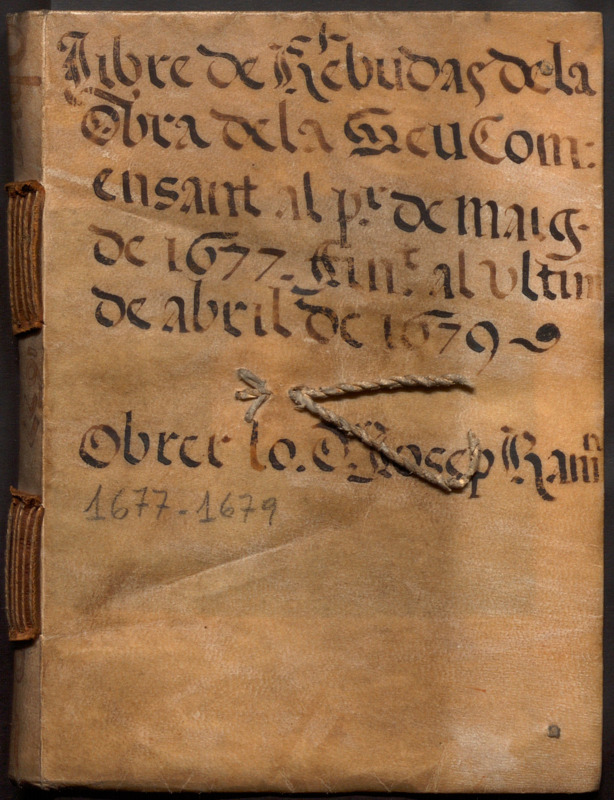 Llibre de Rebudas dela
Obra dela Seu Com:
ensant al pr de Maig.
de 1677. fint al ultim
de abril de 1679
Obrer lo. Josep Ram
1677-1679